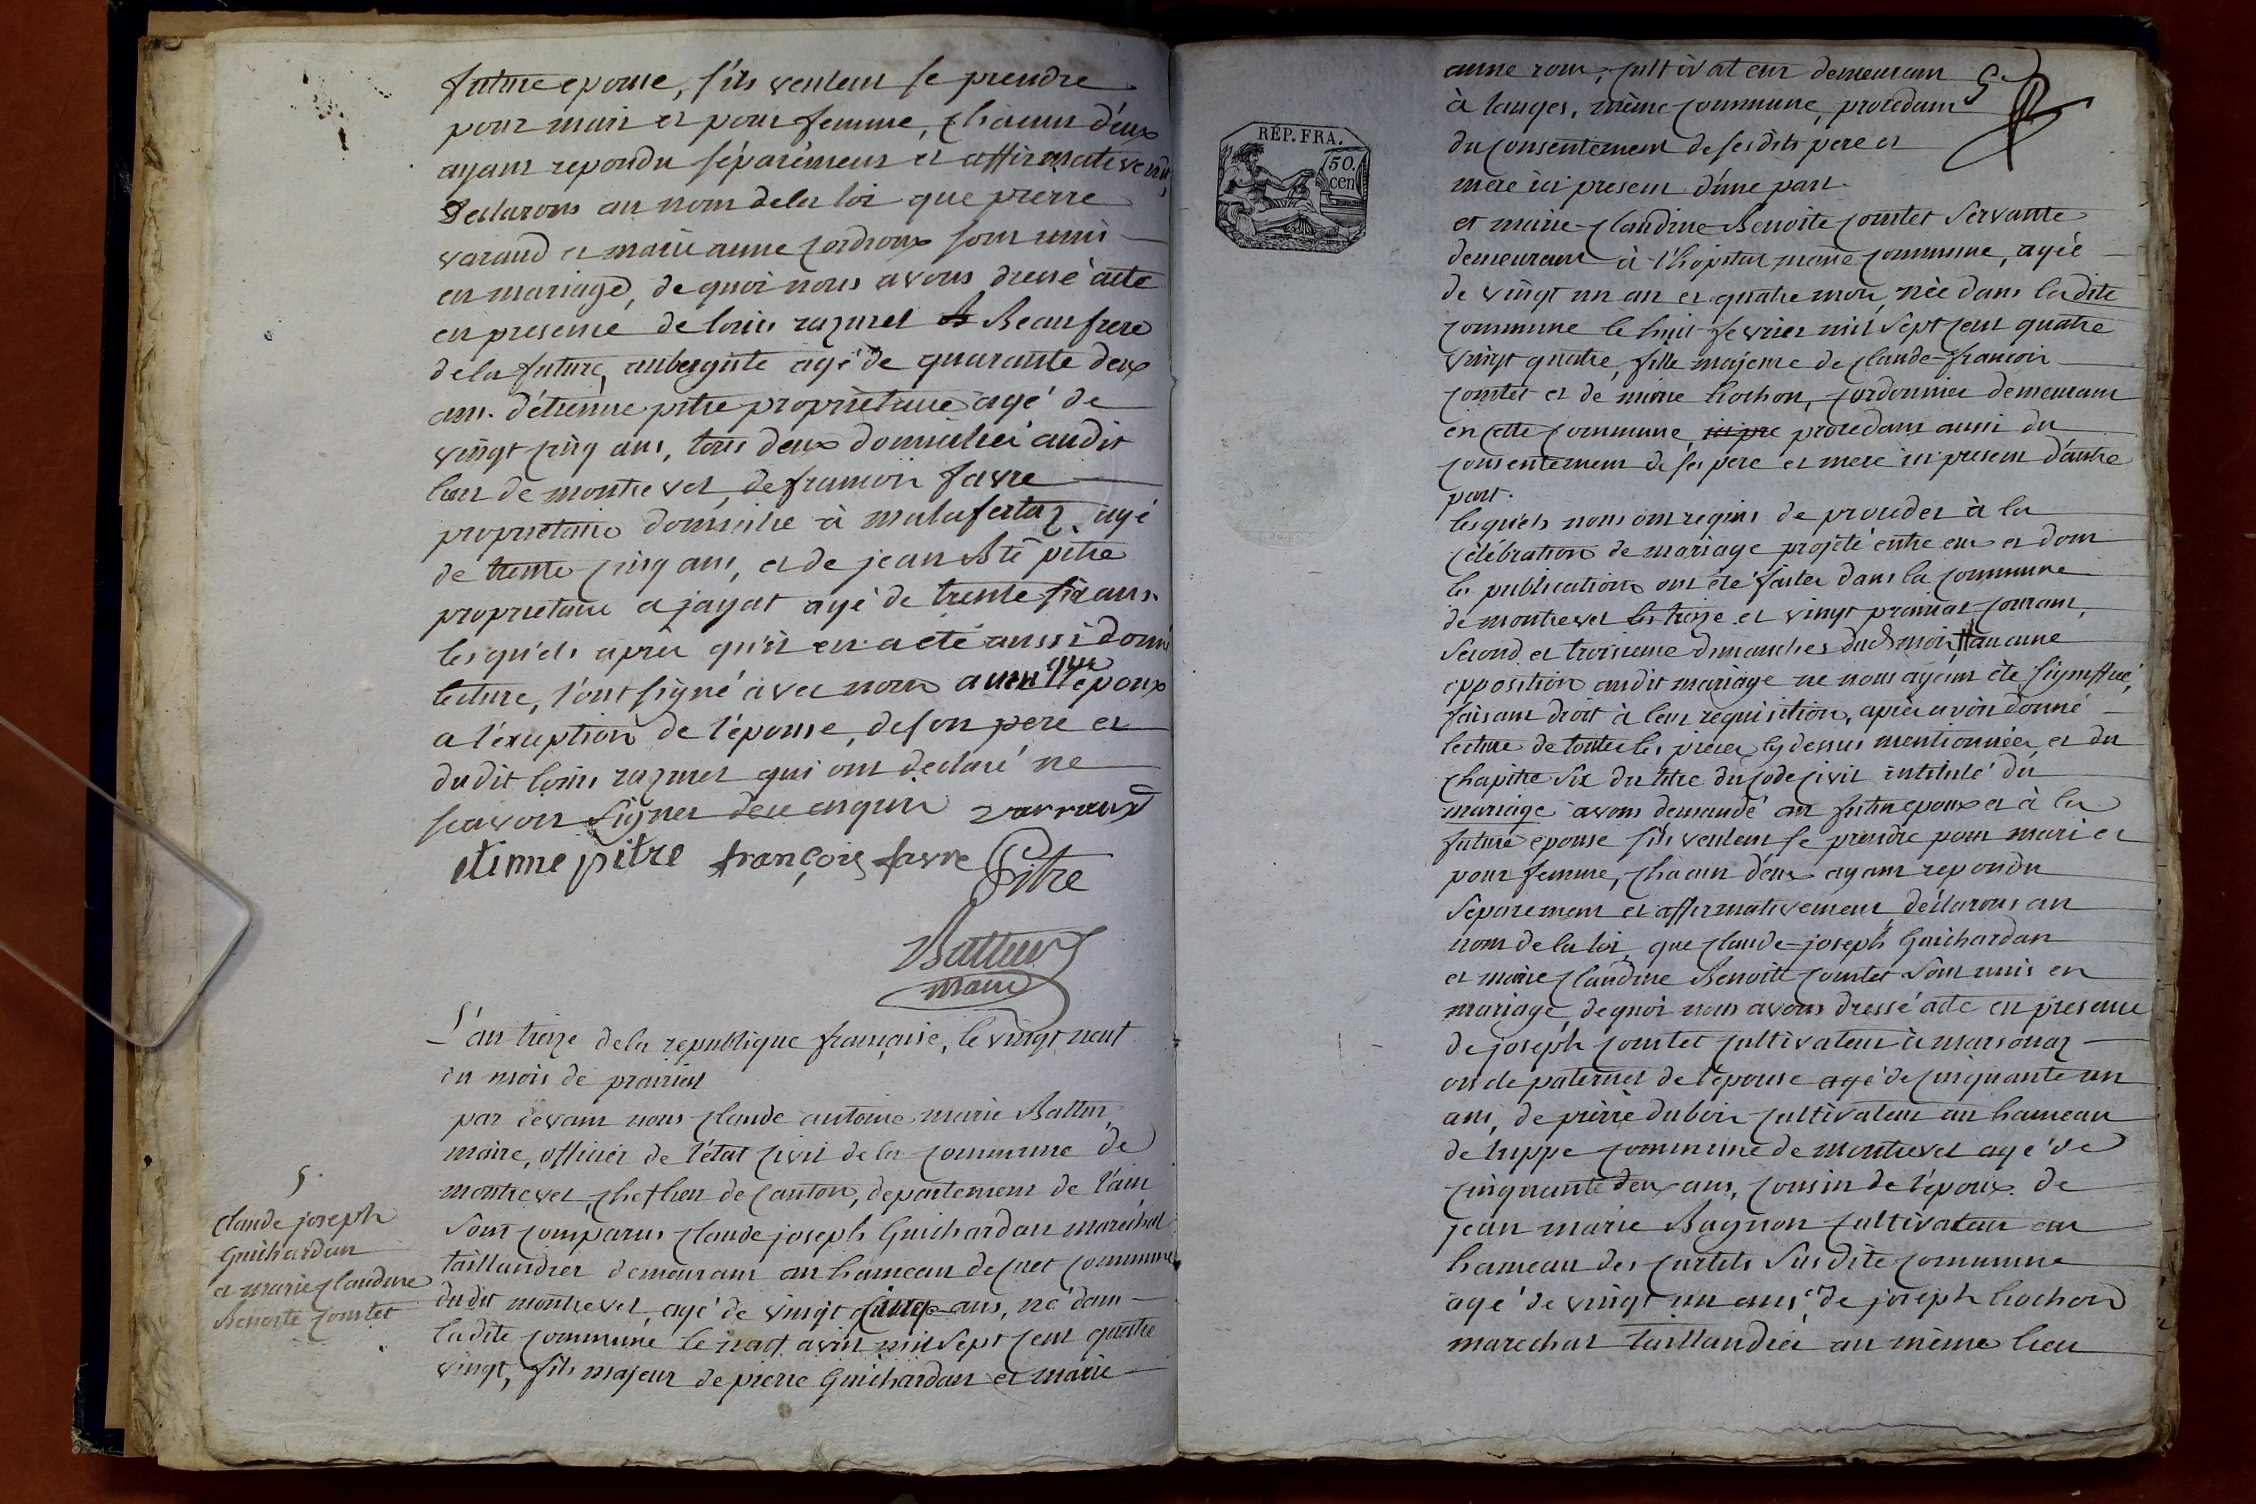 future epouse, s'ils veulent se prendre
pour mari et pour femme, chacun d'eux
ayant repondu séparément et affirmativemt,
Declarons au nom de la loi que pierre
varaud et marie anne cordroux sont unis
en mariage, de quoi nous avons dressé acte
en presence de louis razurel Beaufrere
de la future, aubergiste agé de quarante deux
ans. d'étienne pitre proprietaire agé de
vingt cinq ans, tous deux domiciliés audit
lieu de montrevel, de francois favre
proprietaire domicilié à malafertaz agé
de trente cinq ans, et de jean Bte pitre
proprietaire a jayat agé de trente six ans.
lesquels après qu'il en a été aussi donné
lecture, l'ont signé avec nous l'epoux
a l'exception de l'épouse, de son pere et
dudit louis razurel qui ont declaré ne
scavoir signer de ce enquis varraud
etinne pitre françois favre Pitre
Battur
maire
L'an treize de la republique française, le vingt neuf
du mois de prairial
par devant nous claude antoine marie Battur
maire, officier de l'état civil de la commune de
montrevel, chef lieu de canton, departement de l'ain
sont comparus claude joseph Guichardan marechal
taillandier demeurant au hameau de cuet commune
dudit montrevel, agé de vingt cinq ans, né dans
ladite commune le avril mil sept cent quatre
vingt, fils majeur de pierre Guichardan et marie
5.
Claude joseph
Guichardan
et marie claudine
Benoite comtet
RÉP. FRA.
50.
cen
5e
anne roux, cultivateur demeurant
à lauges, même commune, procedant
du consentement de sesdits pere et
mere ici present d'une part.
et marie claudine Benoite comtet servante
demeurant à l'hopital même commune, agée
de vingt un an et quatre mois, née dans ladite
commune le huit fevrier mil sept cent quatre
vingt quatre, fille majeure de claude francois
comtet et de marie hochon, cordonnier demeurant
en cette commune, ici pre procedant aussi du
consentement de ses pere et mere ici present d'autre
part.
lesquels nous ont requis de proceder à la
célébration de mariage projeté entre eux et dont
les publications ont été faites dans la commune
de montrevel les treize et vingt prairial courant,
second et troisieme dimanches dud. mois, aucune
opposition audit mariage ne nous ayant été signiffiée,
faisant droit à leur requisition, après avoir donné
lecture de toutes les pieces cy dessus mentionnées et du
chapitre six du titre du code civil intitulé du
mariage avons demandé au futur epoux et à la
future epouse s'ils veulent se prendre pour mari et
pour femme, chacun d'eux ayant repondu
séparement et affirmativement, déclarons au
nom de la loi, que claude-joseph Guichardan
et marie claudine Benoite comtet sont unis en
mariage, de quoi nous avons dressé acte en presence
de joseph comtet cultivateur à marsonaz
oncle paternel de l'épouse agé de cinquante un
ans, de pierre dubois cultivateur au hameau
de luppe commune de montrevel agé de
cinquante deux ans, cousin de l'époux. de
jean marie Bagnon cultivateur au
hameau des curtils susdite commune
agé de vingt un ans, et de joseph hochon
marechal taillandier au même lieu